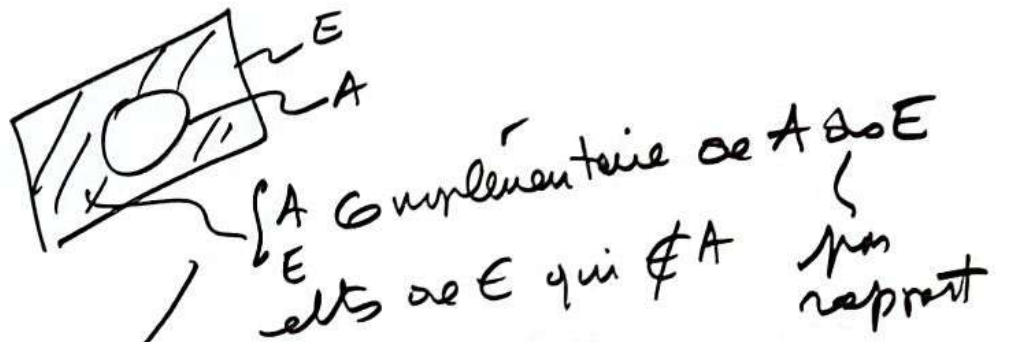 E
A
∁ A E Complémentaire de A ds E
elts de E qui ∉ A par
rapport